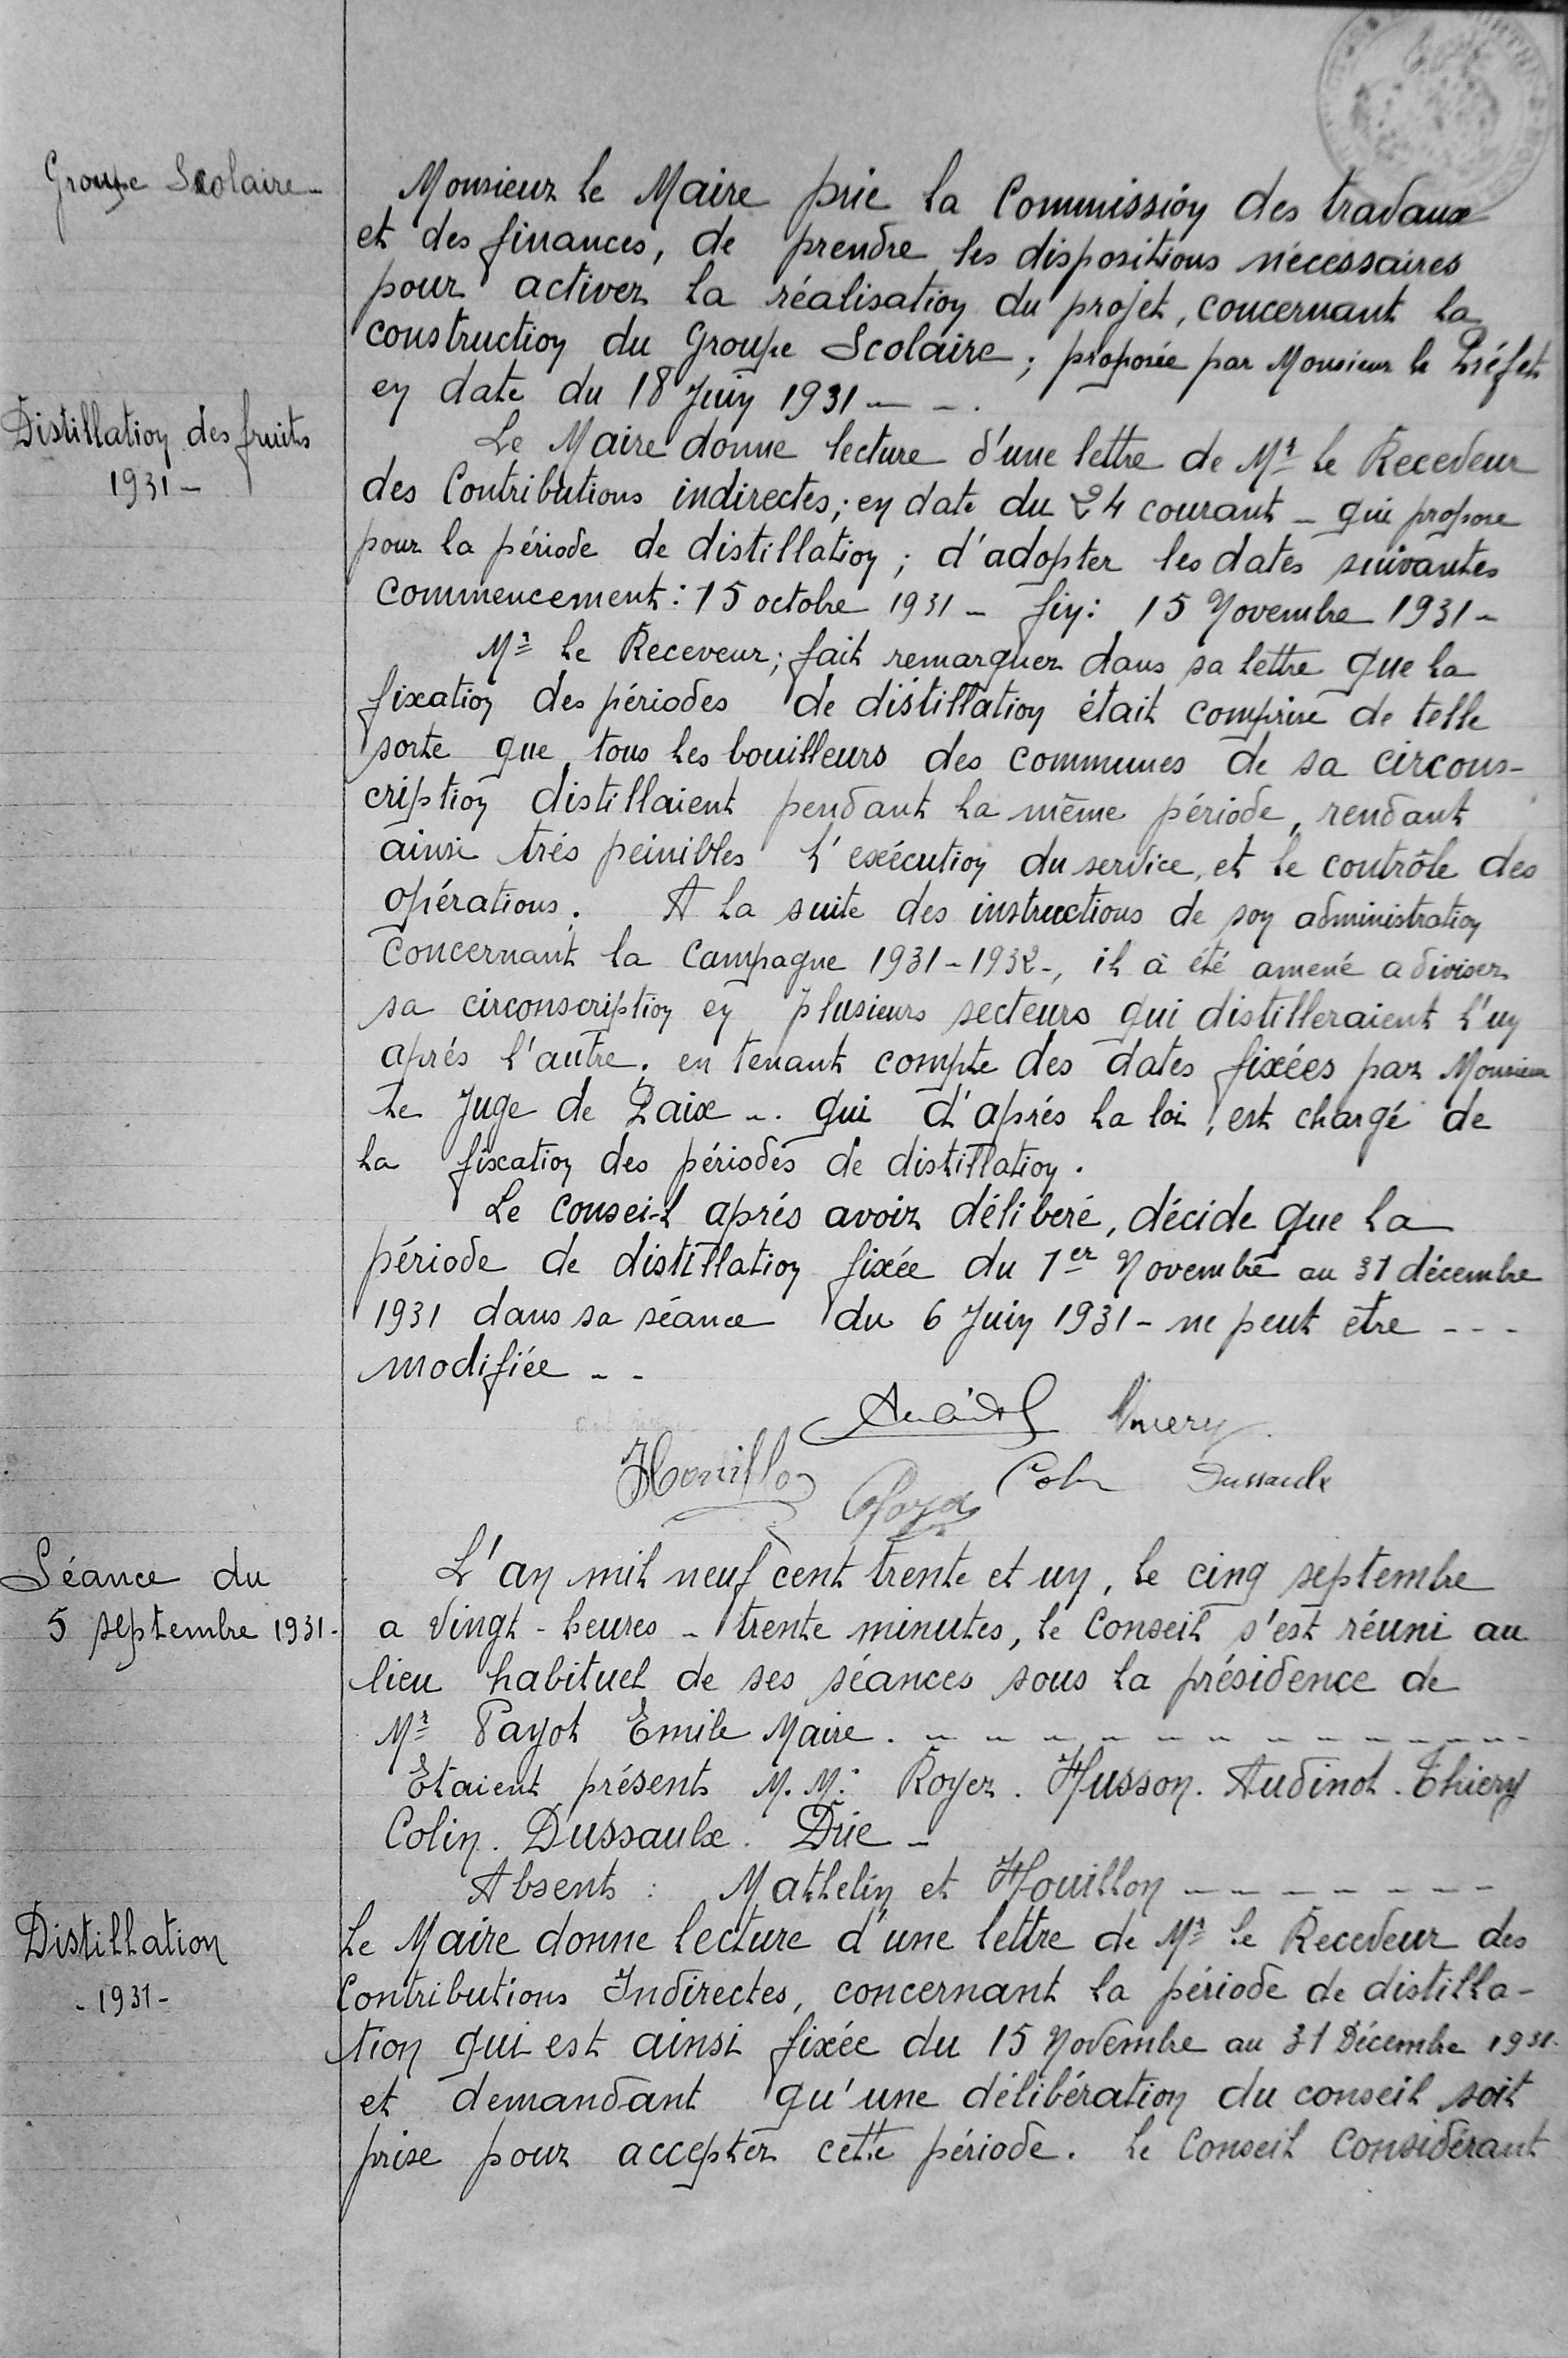 Groupe Scolaire -
Monsieur le Maire prie la Commission des travaux
et des finances, de prendre les dispositions nécessaires
pour activer la réalisation du projet, concernant la
construction du Groupe Scolaire ; proposée par Monsieur le Préfet
en date du 18 Juin 1931 - - .
Distillation des fruits
1931 -
Le Maire donne lecture d'une lettre de Mr le Receveur
des Contributions indirectes ; en date du 24 courant - qui propose
pour la période de distillation ; d'adopter les dates suivantes
commencement : 15 octobre 1931 - fin : 15 Novembre 1931 -
Mr le Receveur ; fait remarquer dans sa lettre que la
fixation des périodes de distillation était comprise de telle
sorte que tous les bouilleurs des communes de sa circons-
cription distillaient pendant la même période, rendant
ainsi trés peinibles l'exécution du service, et le contrôle des
opérations. A la suite des instructions de son administration
concernant la Campagne 1931-1932-, il à été amené a diviser
sa circonscription en plusieurs secteurs qui distilleraient l'un
aprés l'autre ; en tenant compte des dates fixées par Monsieur
le Juge de Paix -. qui d'aprés la loi, est chargé de
la fixation des périodes de distillation.
Le conseil aprés avoir déliberé, décide que la
période de distillation fixée du 1er Novembre au 31 décembre
1931 dans sa séance du 6 Juin 1931 - ne peut etre - - -
modifiée - -
Audinot Thiery
Houillon Colin Dussaulx
Séance du
5 septembre 1931 -
L'an mil neuf cent trente et un, le cinq septembre
a Vingt-heures - trente minutes, le Conseil s'est réuni au
lieu habituel de ses séances sous la présidence de
Mr Payot Emile Maire. - - - - - - - - - - -
Etaient présents M.M : Royer. Husson. Audinot. Thiery
Colin. Dussaulx. Drie -
Absents : Mathelin et Houillon - - - - - - -
Distillation
- 1931 -
Le Maire donne lecture d'une lettre de Mr le Receveur des
Contributions Indirectes, concernant la période de distilla-
tion qui est ainsi fixée du 15 Novembre au 31 Décembre 1931.
et demandant qu'une délibération du conseil soit
prise pour accepter cette période. Le Conseil Considérant